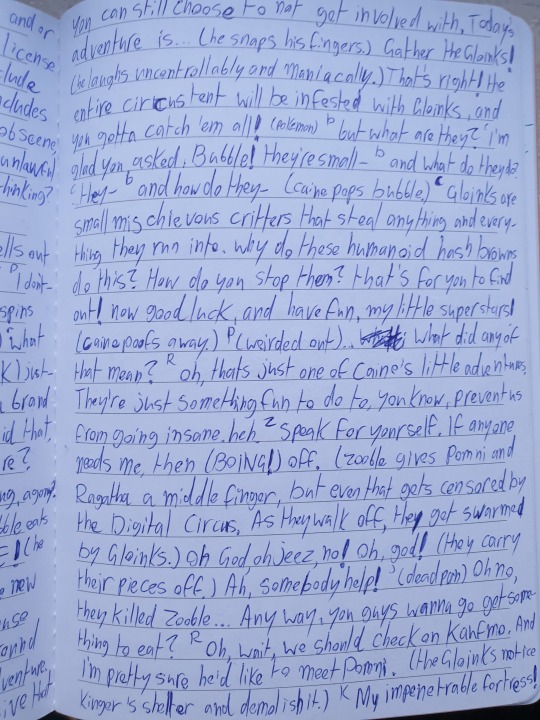 and or
license
clude
cludes
obscene
unlawful
thinking?
ells out
P I don't-
spins
" what
K) just-
a brand
id that
re?
ng, again?
bble eats
E! (he
e new
ense
round
venture,
ive that
you can still choose to not get involved with. Today's
adventure is... (he snaps his fingers.) Gather the Gloinks!
(he laughs uncontrollably and maniacally.) That's right! the
entire circus tent will be infested with Gloinks, and
you gotta catch 'em all! (pokemon) b but what are they? c I'm
glad you asked, Bubble! they're small- b and what do they do?
c Hey- b and how do they- (caine pops bubble.) c Gloinks are
small mischievous critters that steal anything and every-
thing they run into. why do these humanoid hash browns
do this? How do you stop them? that's for you to find
out! now good luck, and have fun, my little superstars!
(caine poofs away.) P (weirded out)... What did any of
that mean? R oh, thats just one of Caine's little adventures.
They're just something fun to do to, you know, prevent us
from going insane. heh. Z Speak for yourself. If anyone
needs me, then (BOING!) off. (zooble gives Pomni and
Ragatha a middle finger, but even that gets censored by
the Digital Circus. As they walk off, they get swarmed
by Gloinks.) Oh God, oh jeez, no! Oh, god! (they carry
their pieces off.) Ah, somebody help! J (deadpan) Oh no,
they killed Zooble... Any way, you guys wanna go get some-
thing to eat? R Oh, wait, we should check on Kaufmo. And
I'm pretty sure he'd like to meet Pomni. (the Gloinks notice
Kinger's shelter and demolish it.) K My impenetrable fortress!